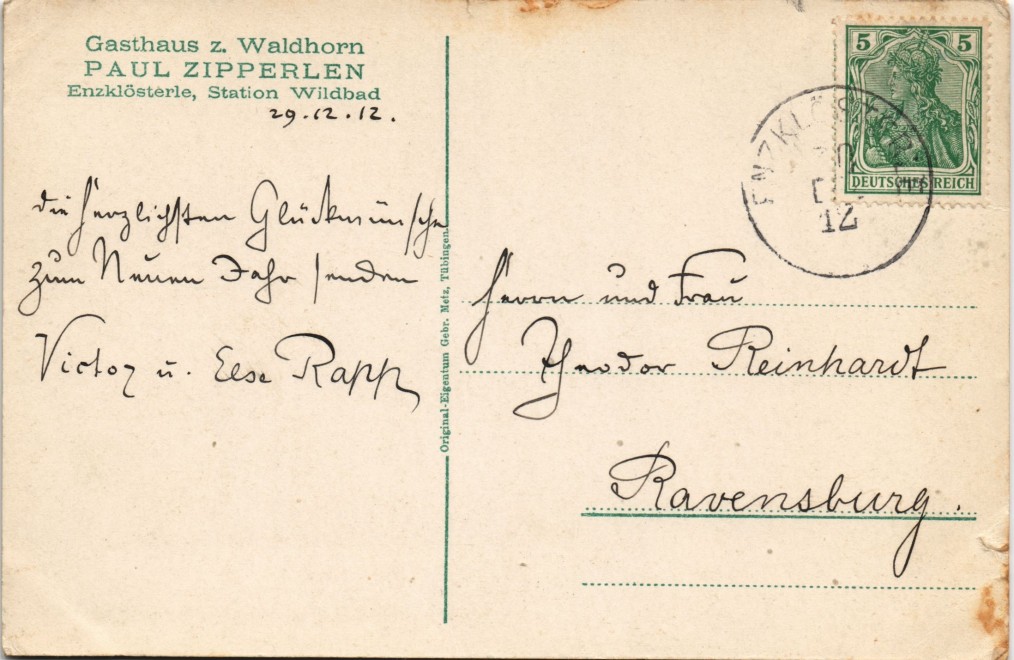 Gasthaus z. Waldhorn
PAUL ZIPPERLEN
Enzklösterle, Station Wildbad
29.12.12.
die herzlichsten Glückwünsche
zum Neuen Jahr senden
Victor u. Else Rapp
Original-Eigentum Gebr. Metz, Tübingen.
5 5
DEUTSCHES REICH
ENZKLÖSTERLE
DEZ
12
Herrn und Frau
Theodor Reinhardt
Ravensburg.